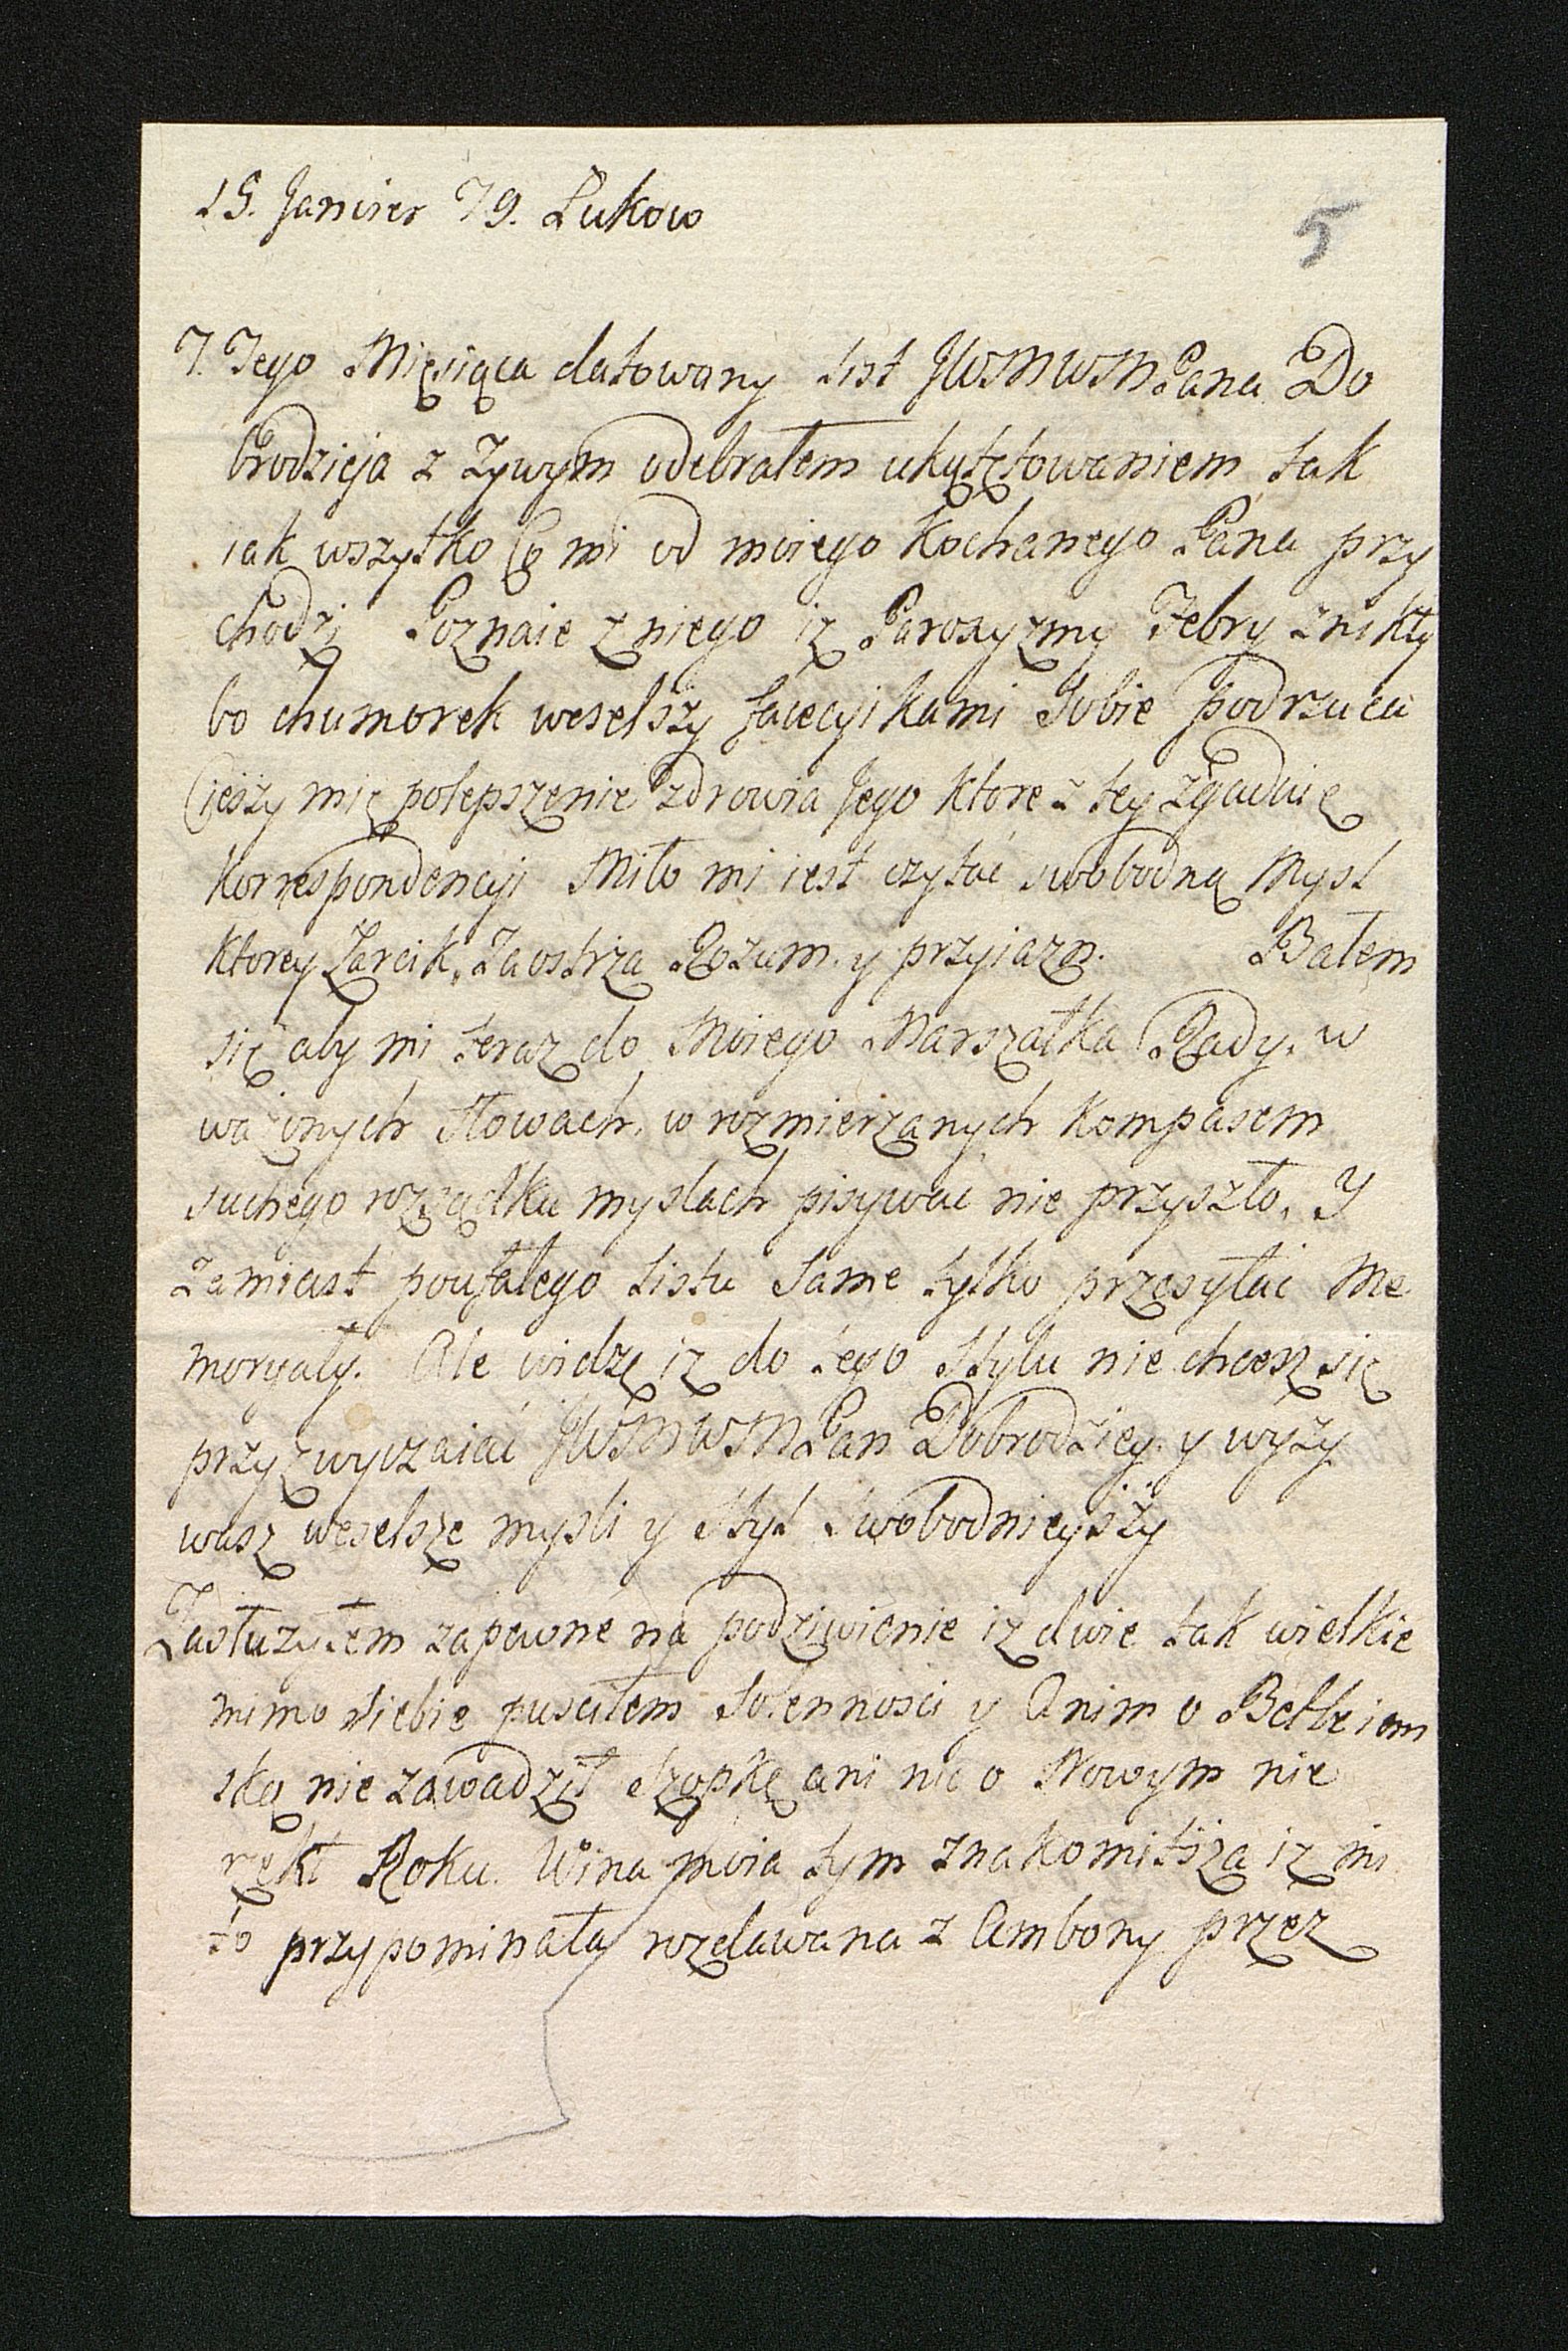 15. Janvier 79. Lukow
5
7. Tego Mięsiąca datowany list JWMWMPana Do
brodzieja z żywym odebrałem ukątętowaniem, tak
iak wszytko Co mi od moiego Kochanego Pana przy
chodzi Poznaie z niego iz Paroxyzmy Febry znikły
bo chumorek weselszy facecyikami Sobie podrzuca
Cieszy mię polepszenie zdrowia Jego ktore z tey zgaduię
Korrespondencyi Miło mi iest czytać swobodną Mysl
ktorey Zarcik, Zaostrza Rozum. y przyiazn. Bałem
się aby mi teraz do Moiego Marszałka Rady. w
ważonych słowach, w rozmierzanych Kompasem
suchego rozsądku myslach pisywac nie przyszło, Y
zamiast poufałego listu same tylko przesyłać Me
moryały. Ale widzę iz do tego Stylu nie chcesz się
przyzwyczaiać JWMWMPan Dobrodziey. y wyzy
wasz weselsze mysli y Styl swobodnieyszy
Zasłużyłem zapewne na podziwienie iz dwie tak wielkie
mimo siebie pusciłem Solennosci y Anim o Betleiem
ską nie zawadził Szopkę ani nic o Nowym nie
rzekł Roku. Wina moia tym znakomitsza iz mi
to przypominała rozdawana z Ambony przez